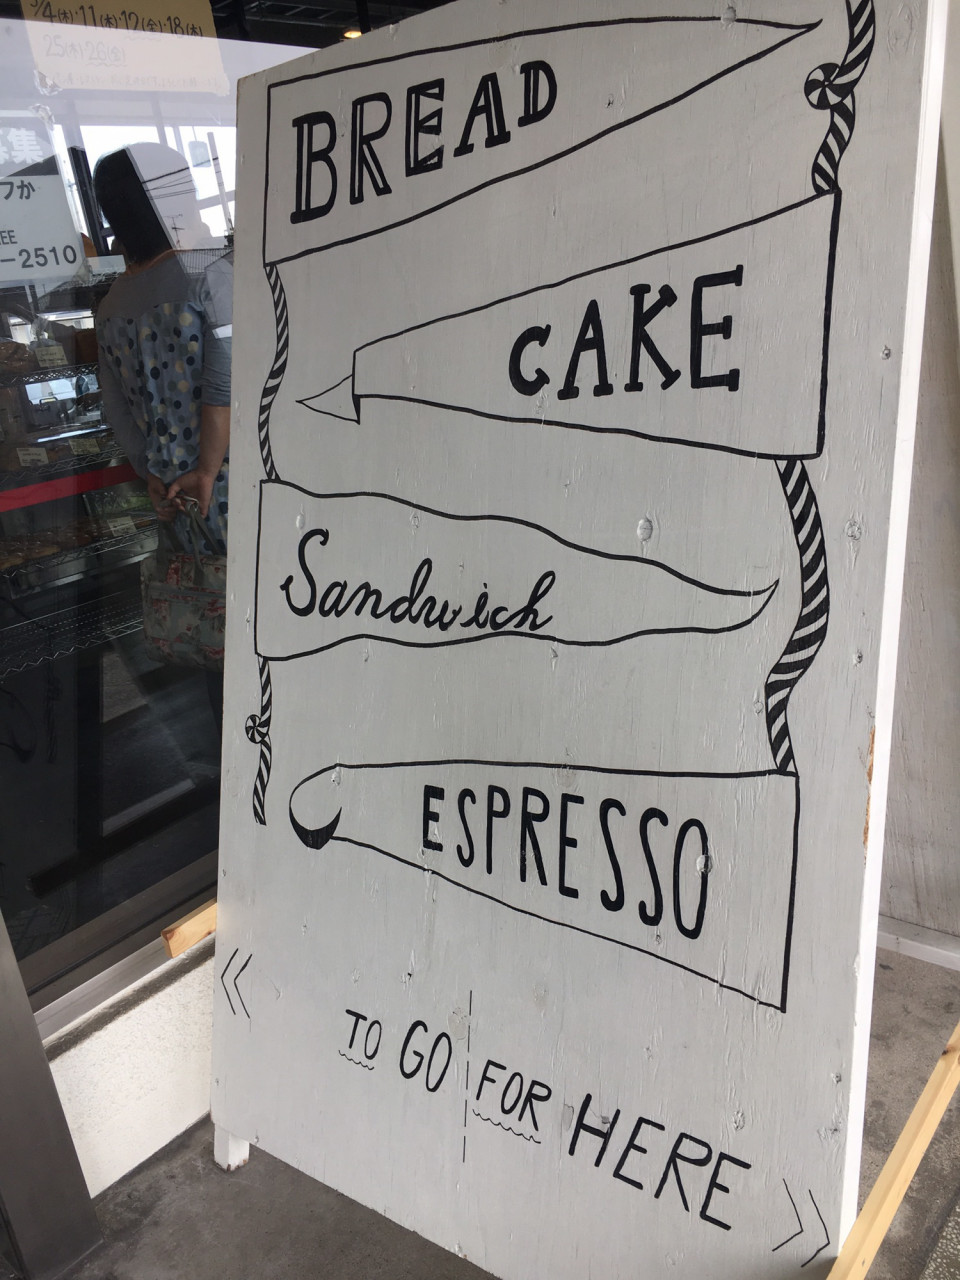 5/4(木)・11(木)・12(金)・18(木)
25(木)26(金)
募集
フか
EE
-2510
BREAD
CAKE
Sandwich
ESPRESSO
<< TO GO FOR HERE >>